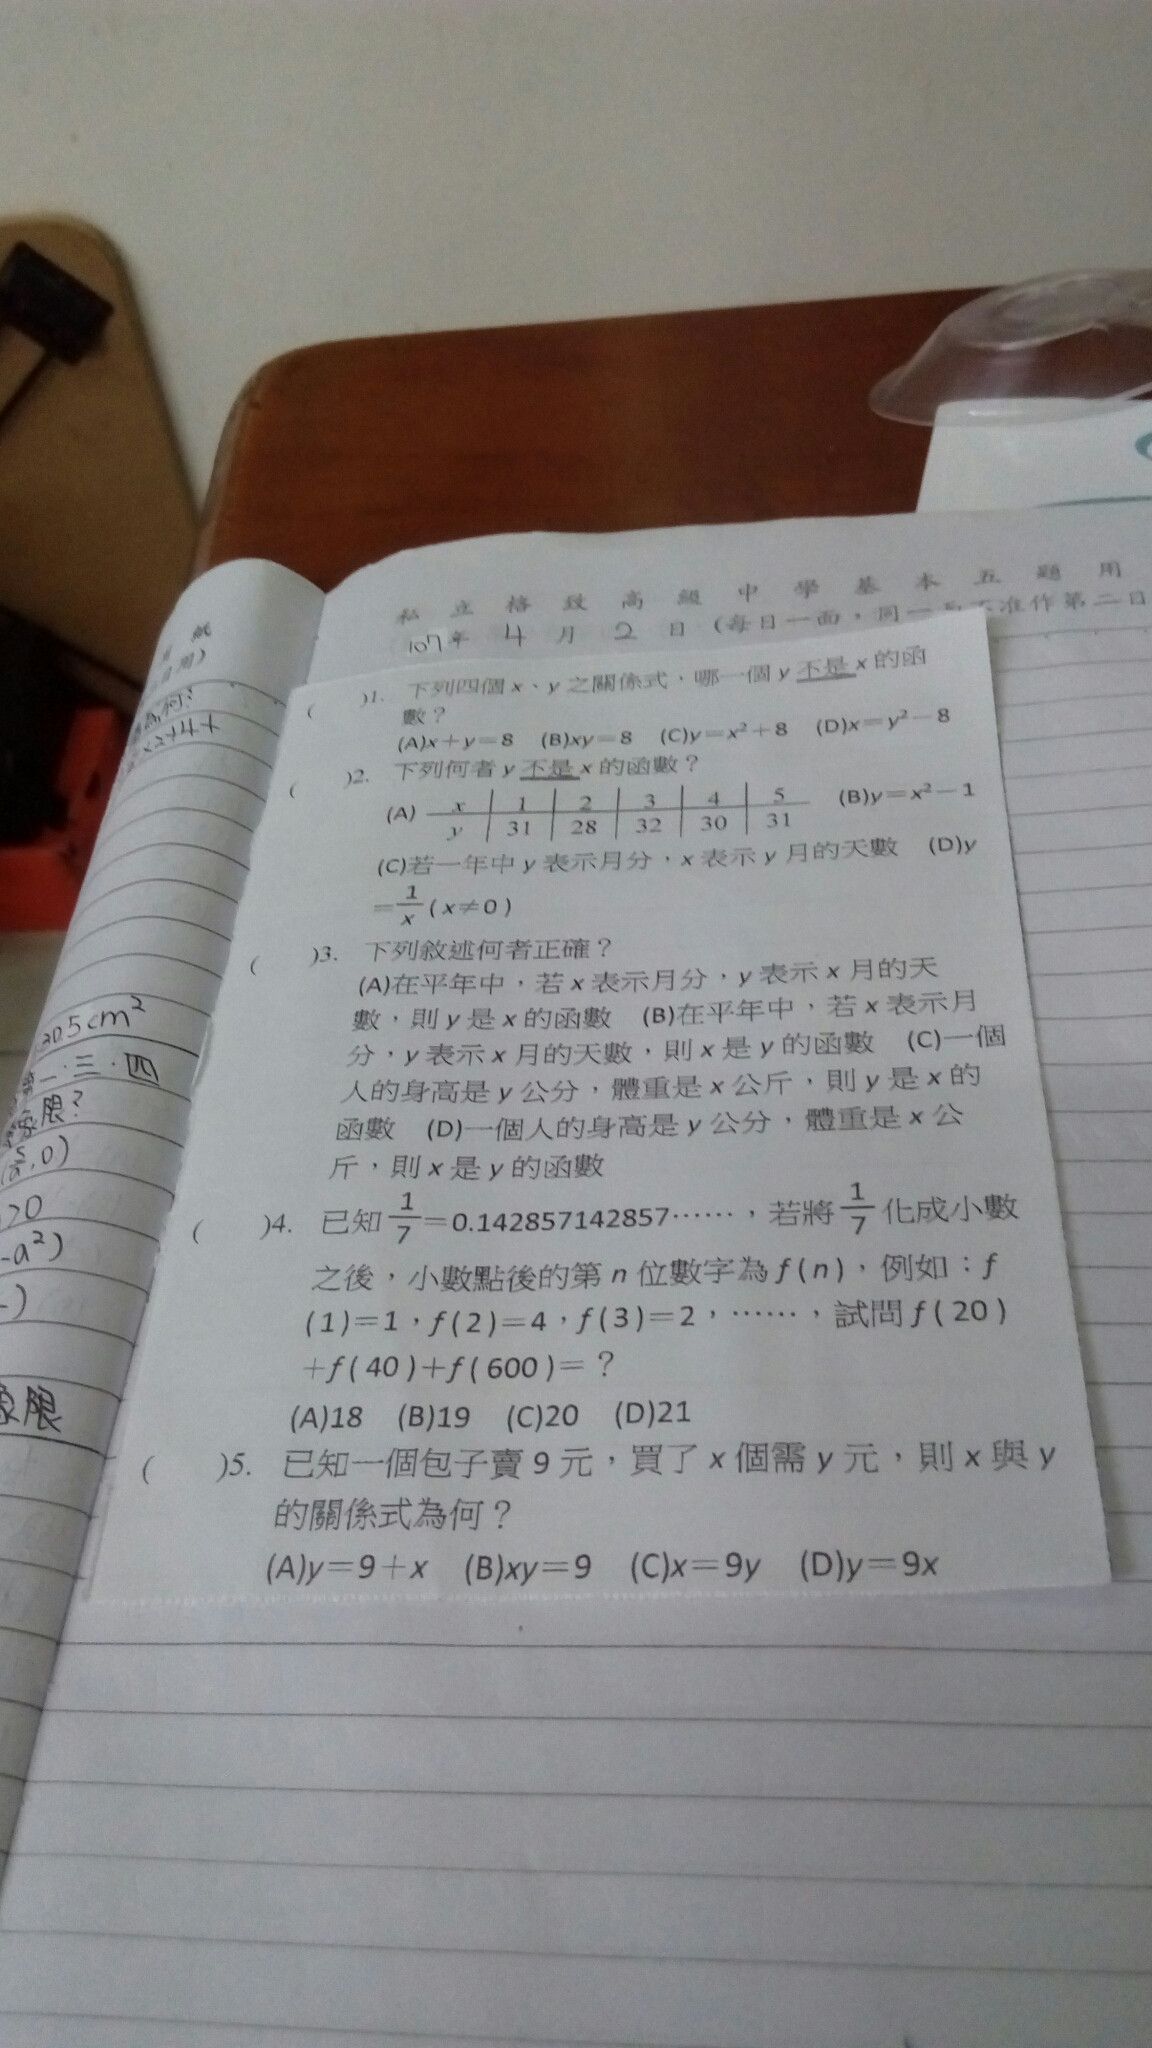 紙
用)
為何?
x2+4+
205cm²
一.三.四
象限?
,0)
20
-a²)
象限
私立格致高級中學基本五題用
107年4月2日(每日一面,同一頁不准作第二日
( )1. 下列四個 x、y 之關係式,哪一個 y 不是 x 的函
數?
(A)x+y=8 (B)xy=8 (C)y=x²+8 (D)x=y²-8
( )2. 下列何者 y 不是 x 的函數?
(A) x 1 2 3 4 5 (B)y=x²-1
y 31 28 32 30 31
(C)若一年中 y 表示月分,x 表示 y 月的天數 (D)y
=1/x (x≠0)
( )3. 下列敘述何者正確?
(A)在平年中,若 x 表示月分,y 表示 x 月的天
數,則 y 是 x 的函數 (B)在平年中,若 x 表示月
分,y 表示 x 月的天數,則 x 是 y 的函數 (C)一個
人的身高是 y 公分,體重是 x 公斤,則 y 是 x 的
函數 (D)一個人的身高是 y 公分,體重是 x 公
斤,則 x 是 y 的函數
( )4. 已知 1/7=0.142857142857……,若將 1/7 化成小數
之後,小數點後的第 n 位數字為 f(n),例如:f
(1)=1,f(2)=4,f(3)=2,……,試問 f(20)
+f(40)+f(600)=?
(A)18 (B)19 (C)20 (D)21
( )5. 已知一個包子賣 9 元,買了 x 個需 y 元,則 x 與 y
的關係式為何?
(A)y=9+x (B)xy=9 (C)x=9y (D)y=9x